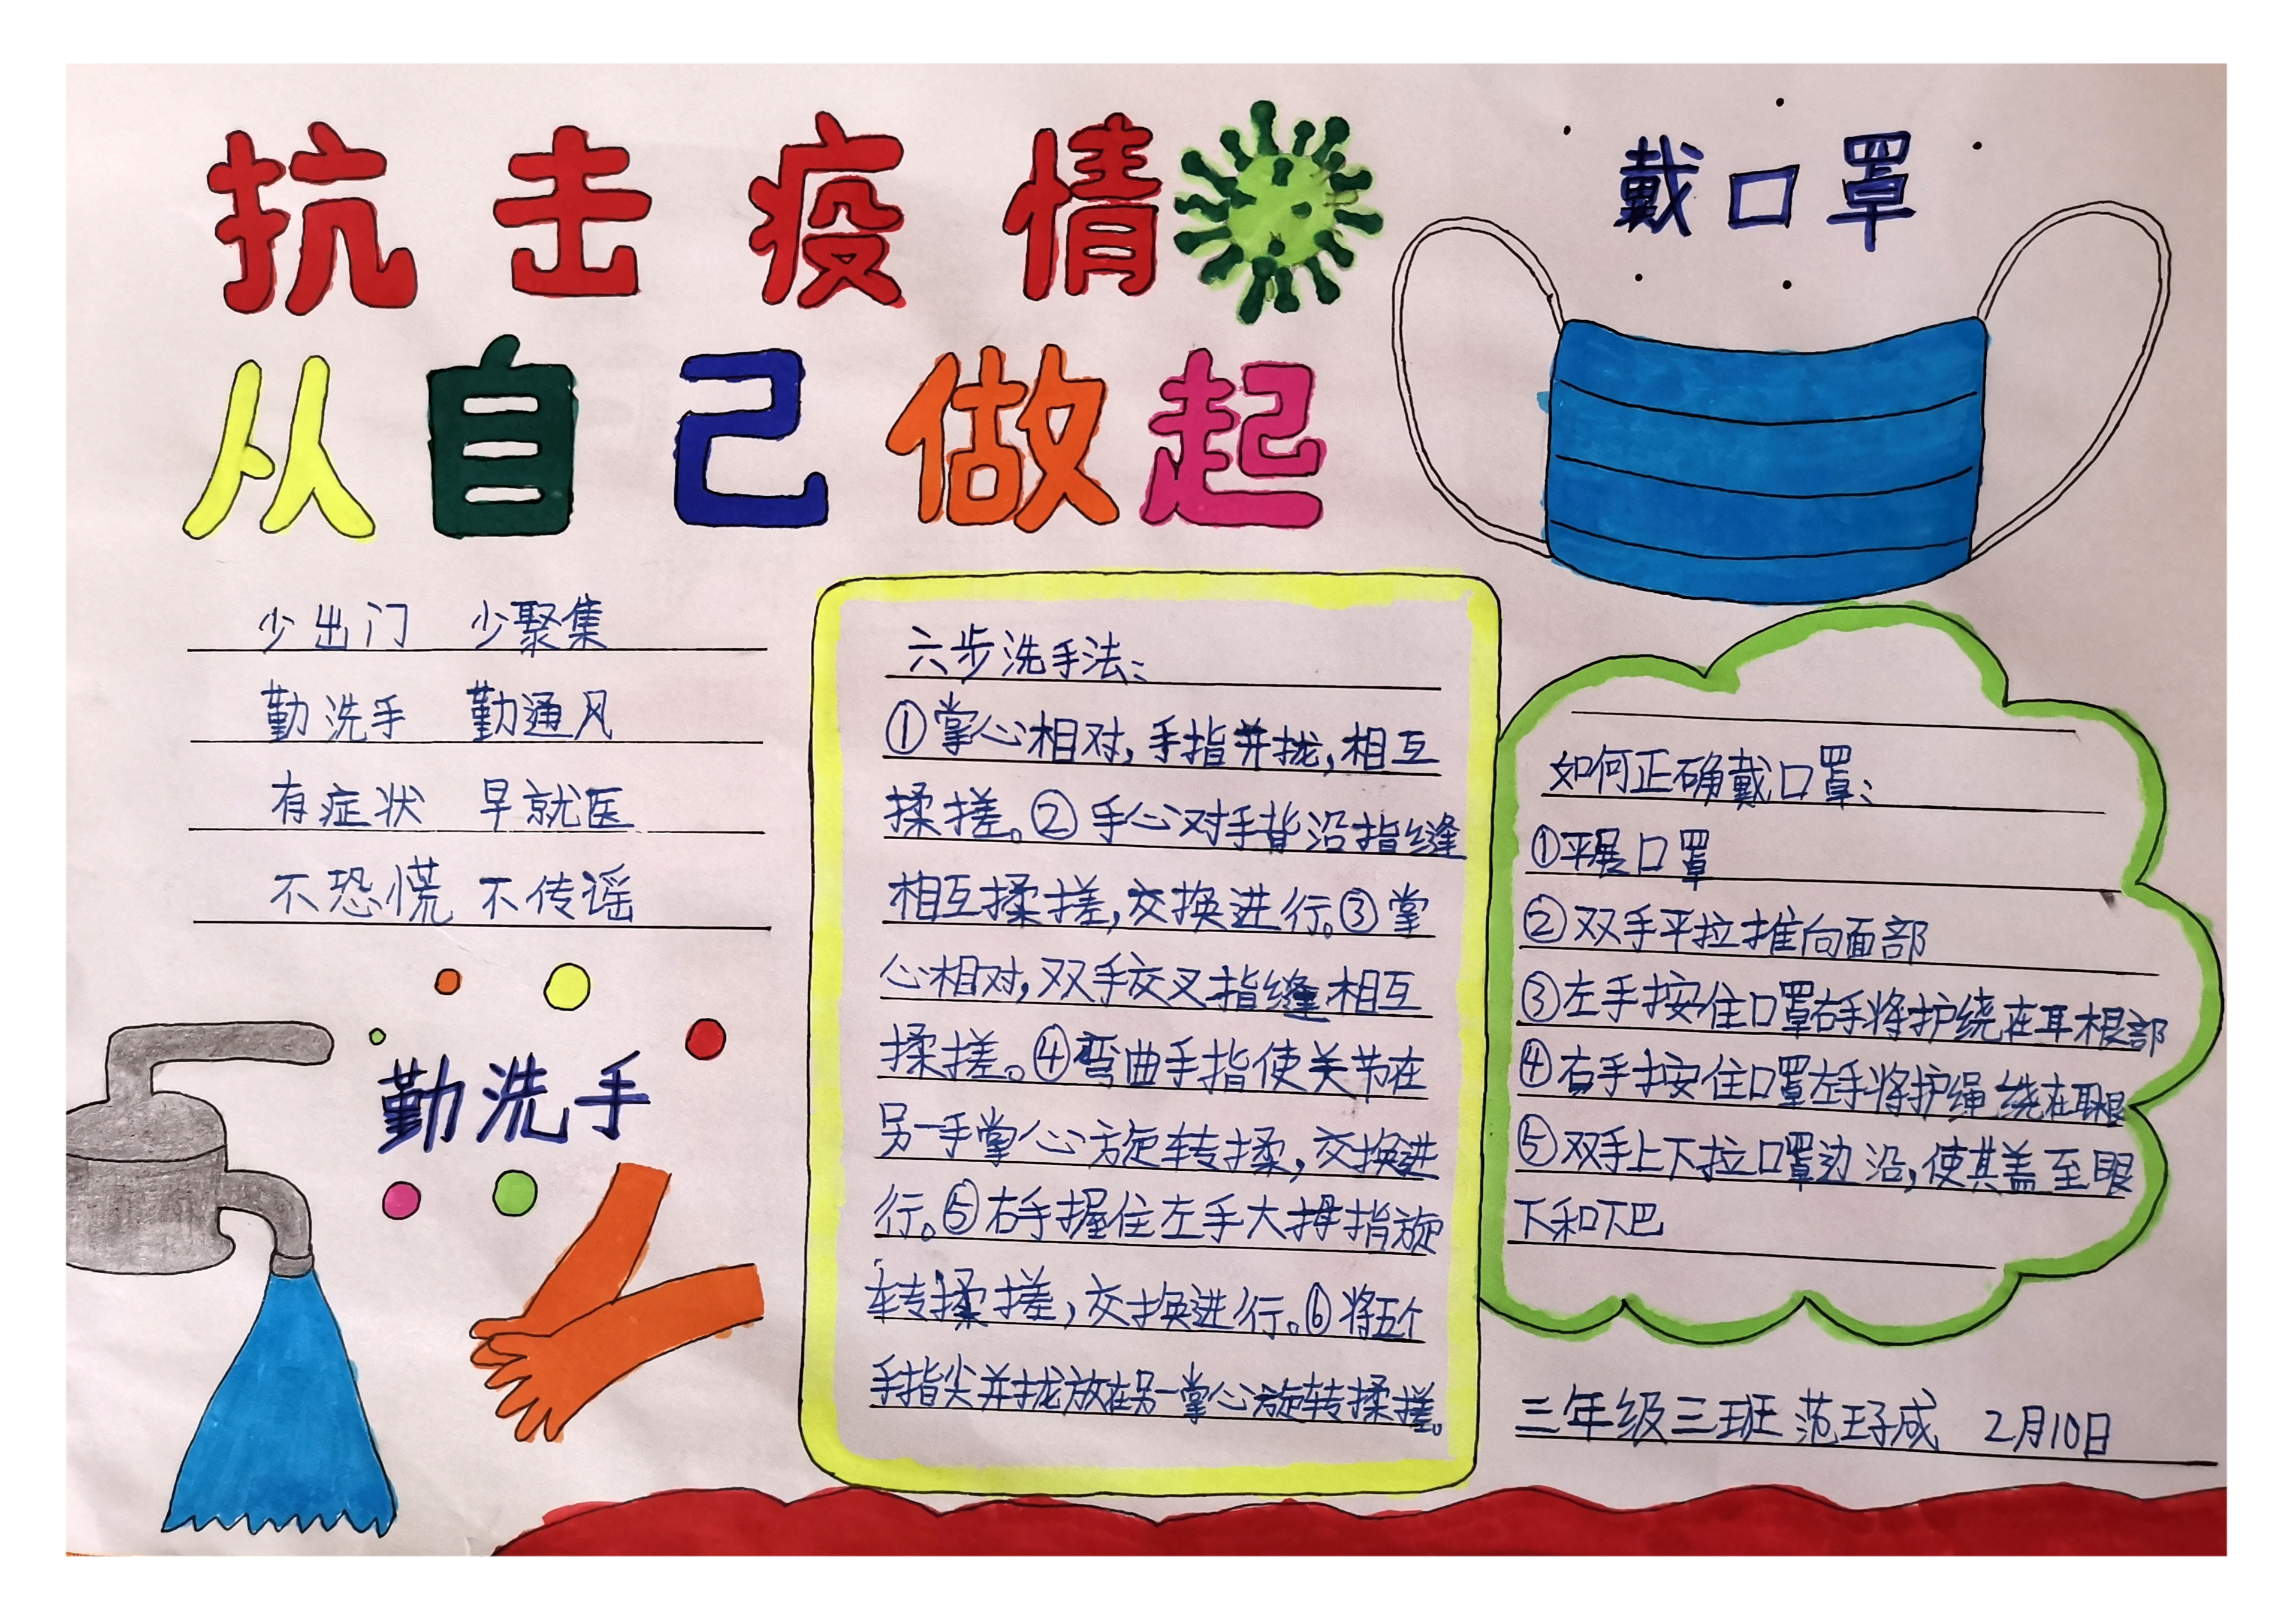 抗击疫情
从自己做起
戴口罩
少出门 少聚集
勤洗手 勤通风
有症状 早就医
不恐慌 不传谣
勤洗手
六步洗手法:
①掌心相对,手指并拢,相互
揉搓。②手心对手背沿指缝
相互揉搓,交换进行。③掌
心相对,双手交叉指缝相互
揉搓。④弯曲手指使关节在
另一手掌心旋转揉,交换进
行。⑤右手握住左手大拇指旋
转揉搓,交换进行。⑥将五个
手指尖并拢放在另一掌心旋转揉搓。
如何正确戴口罩:
①平展口罩
②双手平拉推向面部
③左手按住口罩右手将护绕在耳根部
④右手按住口罩左手将护绳绕在耳根
⑤双手上下拉口罩边沿,使其盖至眼
下和下巴
三年级三班 范王子成 2月10日